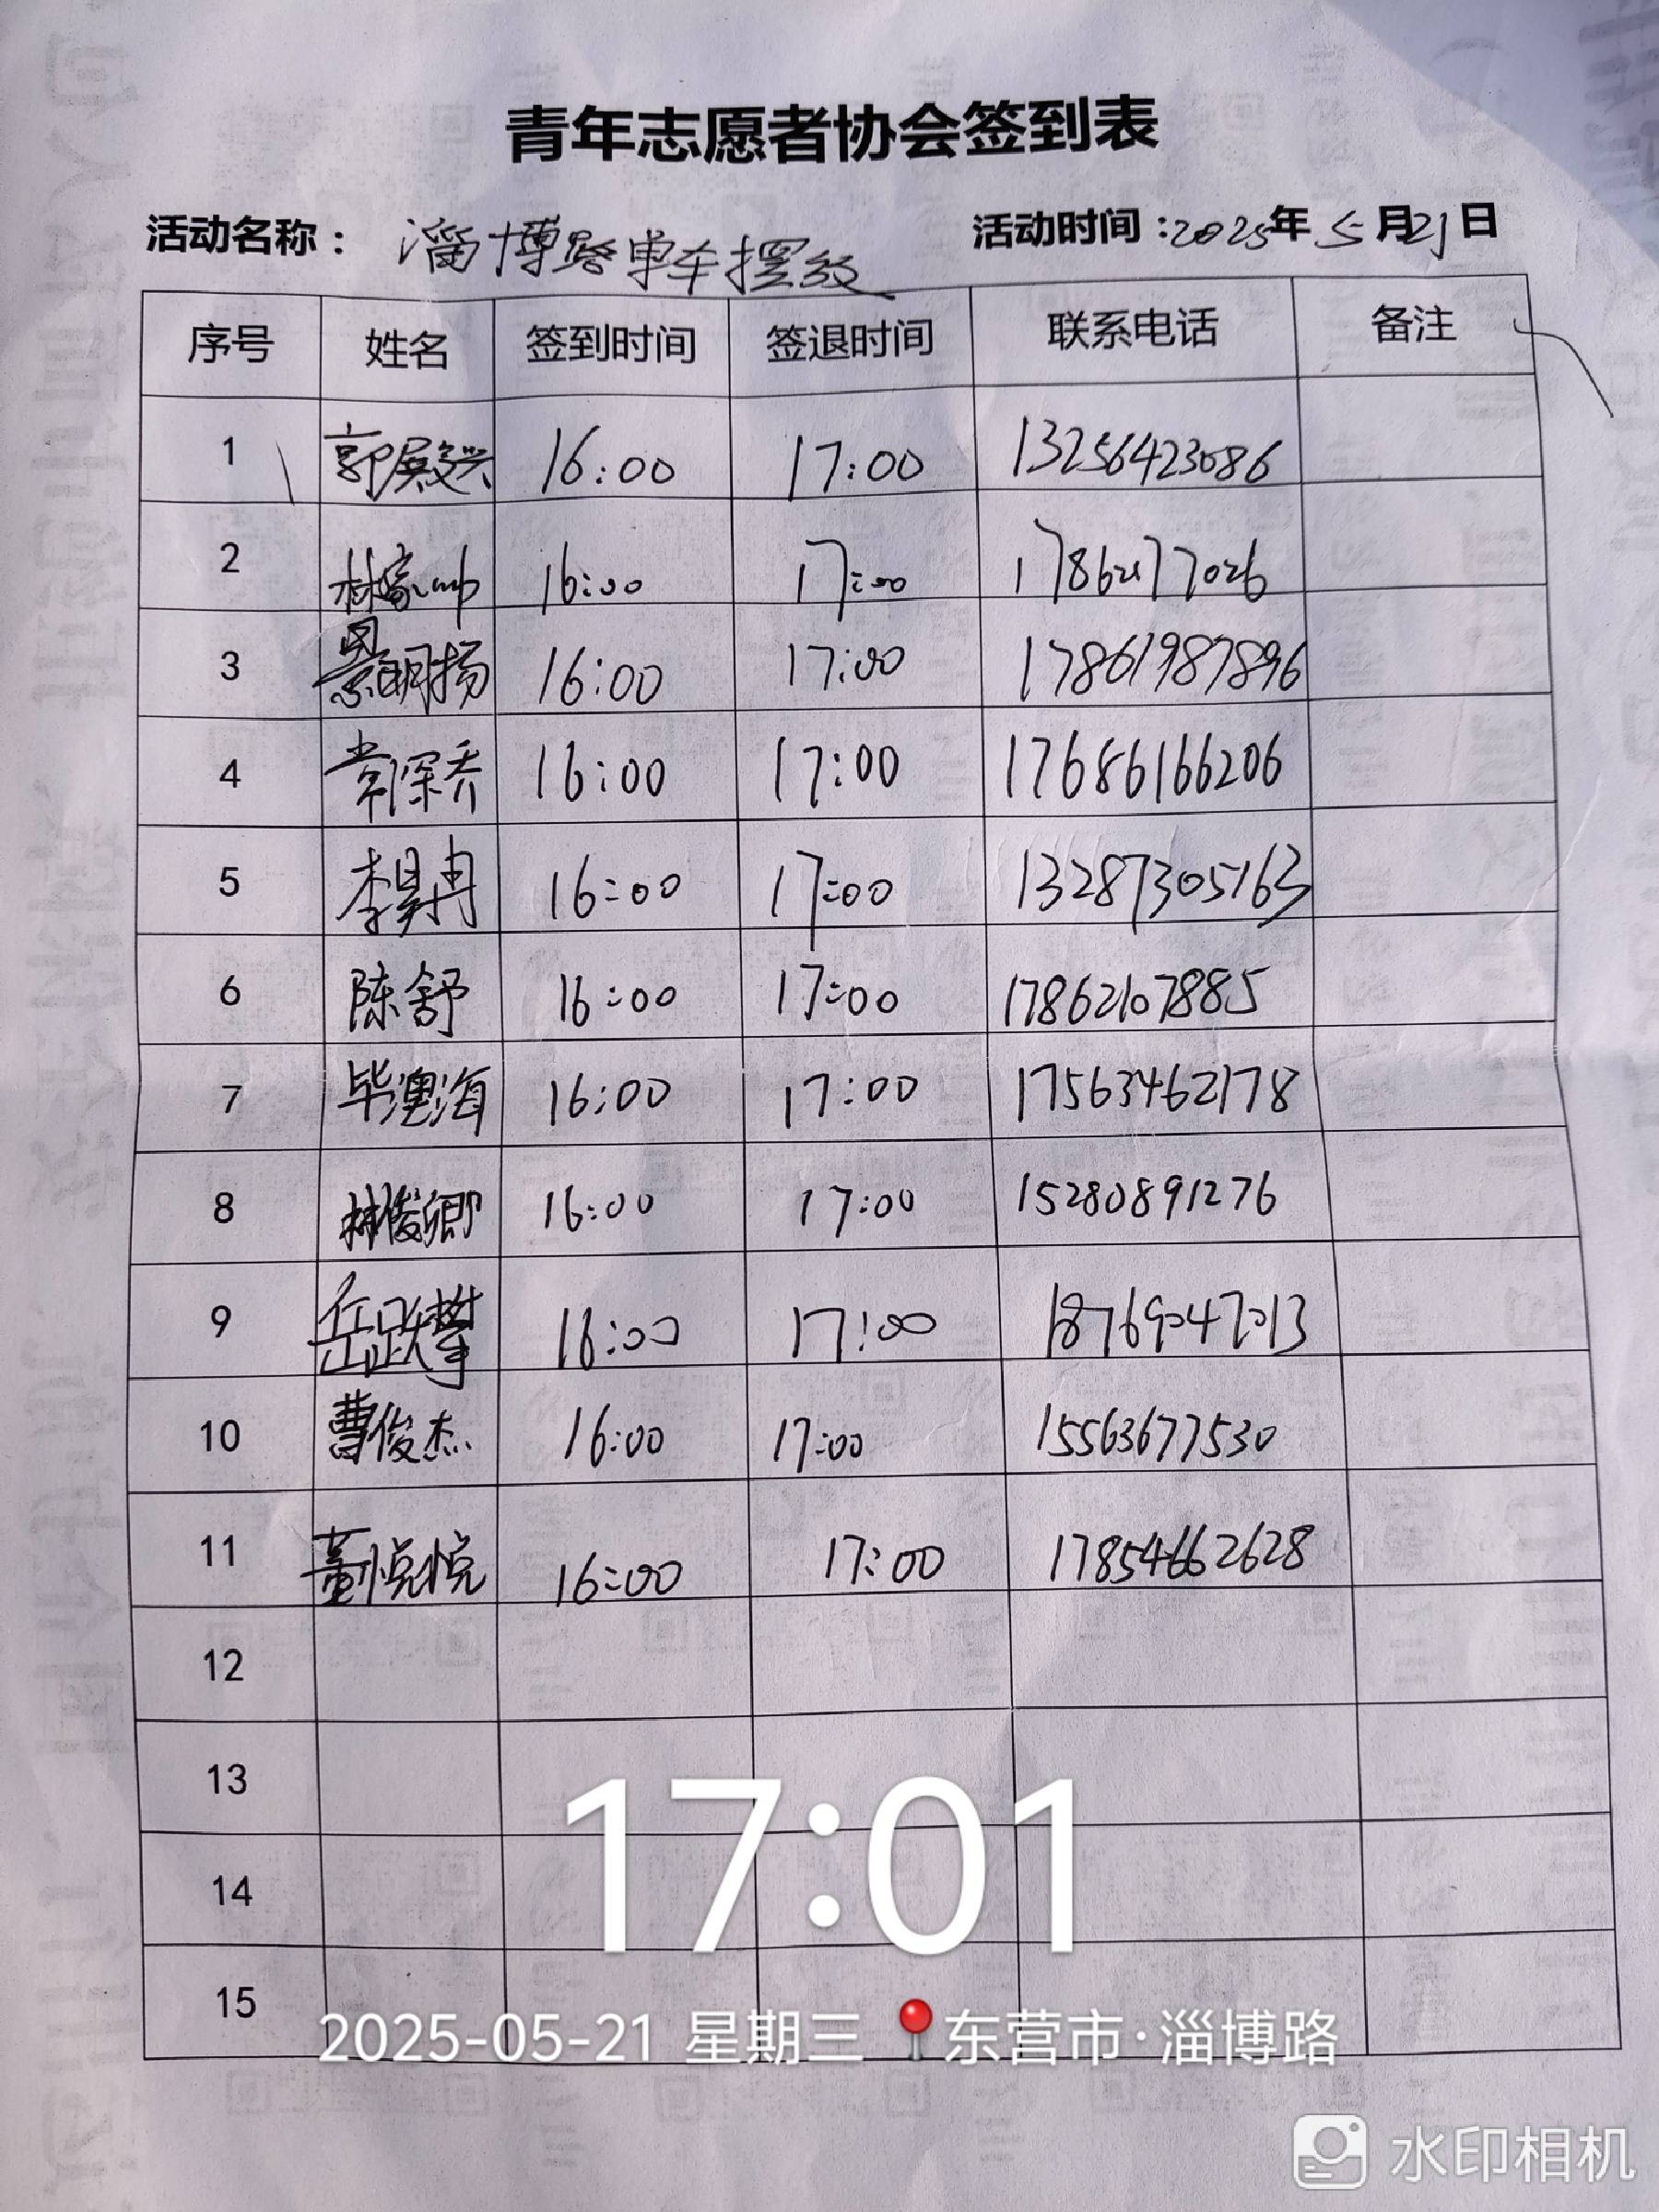 青年志愿者协会签到表
活动名称： 淄博路单车摆放 活动时间：2025年5月21日
序号 姓名 签到时间 签退时间 联系电话 备注
1 郭殿兴 16:00 17:00 13256423086
2 林家帅 16:00 17:00
3 景明扬 16:00 17:00 17861987896
4 常深乔 16:00 17:00 17686166206
5 李昊冉 16:00 17:00 13287305163
6 陈舒 16:00 17:00 17862107885
7 毕澳海 16:00 17:00 17563462178
8 林俊卿 16:00 17:00 15280891276
9 岳跃攀 16:00 17:00 18769047013
10 曹俊杰 16:00 17:00 15563677530
11 董悦悦 16:00 17:00 17854662628
12
13
14
15
17:01
2025-05-21 星期三 东营市·淄博路
水印相机